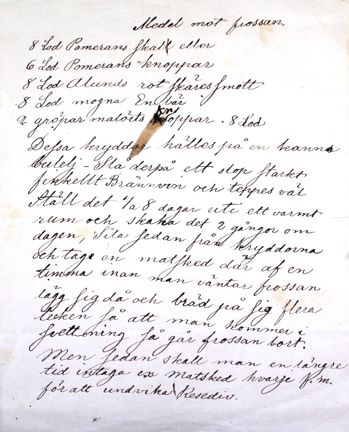 Medel mot frossan.
8 Lod Pomerans skall eller
6 Lod Pomerans-knoppar
8 Lod Alunds rot skäres smått
8 Lod mogna En bär
2 gröpar malörts knoppar. 8 Lod
Dessa kryddor hälles på en kanna
butelj - Slå derpå ett stop starkt
finkellt Brännvin och teppes väl
Ställ det 7/a 8 dagar uti ett varmt
rum och skaka det 2 gångor om
dagen, Sila sedan från kryddorna
och tag en matsked där af en
timma inan man väntar frossan
lägg sig då och bräd på sig flera
täcken så att man kommer i
svettning så går frossan bort.
Men sedan skall man en längre
tid intaga en matsked hvarje f.m.
för att undvika Resediv.